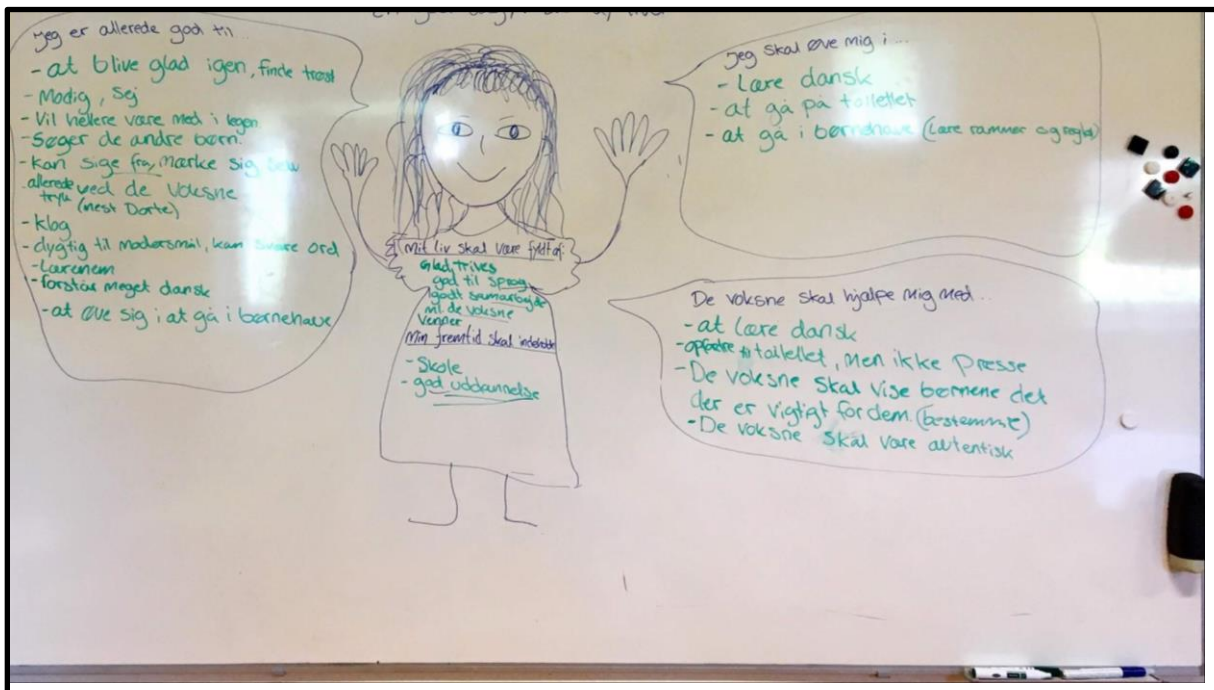 Jeg er allerede god til...
- at blive glad igen, finde trøst
- Modig, Sej
- Vil hellere være med i legen
- Søger de andre børn.
- kan sige fra, mærke sig selv
- allerede ved de voksne
tryk (mest Dorte)
- klog
- dygtig til modersmål, kan svære ord
- Lærenem
- forstår meget dansk
- at øve sig i at gå i børnehave
Mit liv skal være fyldt af:
Glad, trives
god til sprog
godt samarbejde
ml. de voksne
Venner
Min fremtid skal indeholde
- Skole
- god uddannelse
Jeg skal øve mig i...
- Lære dansk
- at gå på toilettet
- at gå i børnehave (Lære rammer og regler)
De voksne skal hjælpe mig med...
- at lære dansk
- opfordre til toilettet, men ikke Presse
- De voksne skal vise børnene det
der er vigtigt for dem. (bestemmt)
- De voksne skal være autentisk